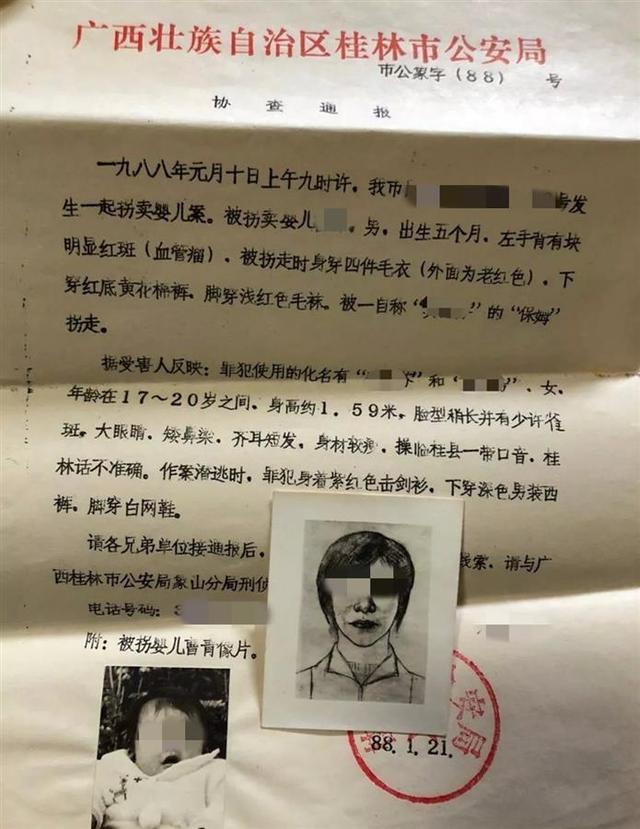 广西壮族自治区桂林市公安局
市公象字（88） 号
协查通报
一九八八年元月十日上午九时许，我市 号发
生一起拐卖婴儿案。被拐卖婴儿 ，男，出生五个月，左手背有块
明显红斑（血管瘤），被拐走时身穿四件毛衣（外面为老红色），下
穿红底黄花棉裤，脚穿浅红色毛袜。被一自称“ ”的“保姆”
拐走。
据受害人反映：罪犯使用的化名有“ ”和“ ”，女，
年龄在17～20岁之间，身高约1.59米，脸型稍长并有少许雀
斑。大眼睛，矮鼻梁，齐耳短发，身材较瘦，操临桂县一带口音，桂
林话不准确。作案潜逃时，罪犯身着紫红色击剑衫，下穿深色男装西
裤，脚穿白网鞋。
请各兄弟单位接通报后， 线索，请与广
西桂林市公安局象山分局刑侦
电话号码：
附：被拐婴儿曹青像片。
安局
88.1.21.